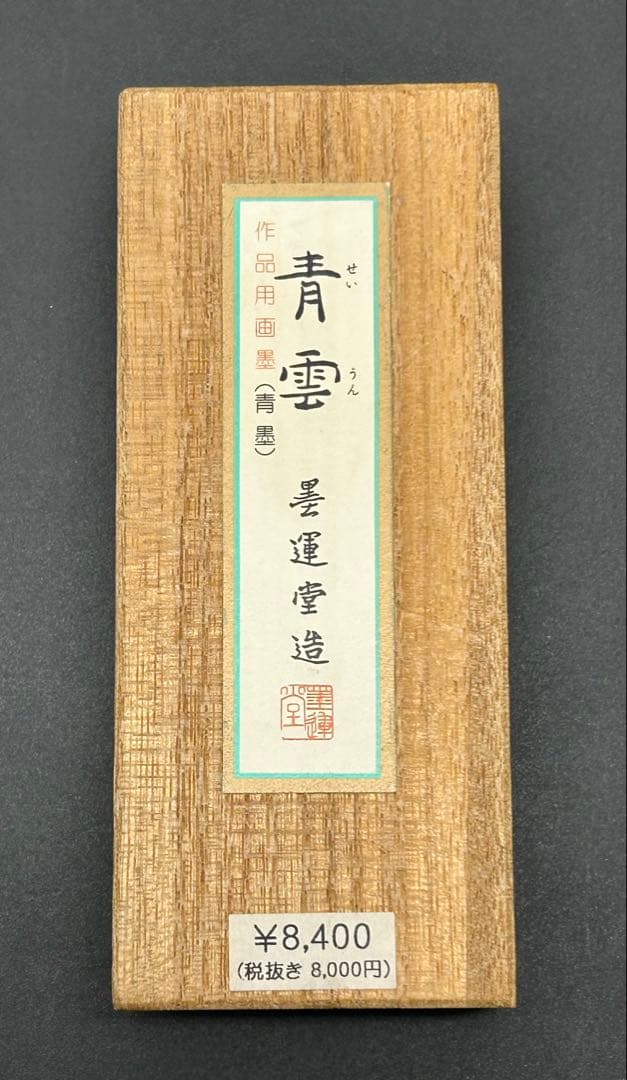 青雲
せいうん
作品用画墨(青墨)
墨運堂造
墨運堂
¥8,400
(税抜き 8,000円)